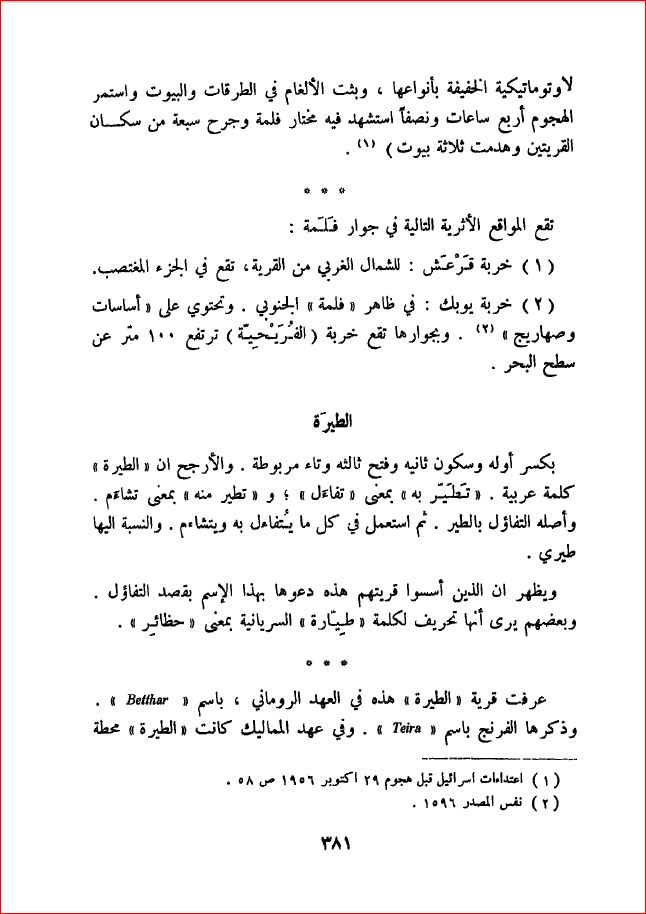 لاوتوماتيكية الخفيفة بأنواعها ، وبثت الألغام في الطرقات والبيوت واستمر
الهجوم أربع ساعات ونصفاً استشهد فيه مختار فلمة وجرح سبعة من سكــان
القريتين وهدمت ثلاثة بيوت ) (١) .
* * *
تقع المواقع الأثرية التالية في جوار فَلَمة :
( ١ ) خربة قَرْعَش : للشمال الغربي من القرية، تقع في الجزء المغتصب.
( ٢ ) خربة يوبك : في ظاهر « فلمة » الجنوبي . وتحتوي على « أساسات
وصهاريج » (٢) . وبجوارها تقع خربة ( الفُرَيْحِيّة ) ترتفع ١٠٠ متر عن
سطح البحر .
الطيرَة
بكسر أوله وسكون ثانيه وفتح ثالثه وتاء مربوطة . والأرجح ان « الطيرة »
كلمة عربية . « تَطَيّر به » بمعنى « تفاءَل » ؛ و « تطير منه » بمعنى تشاءَم .
وأصله التفاؤل بالطير . ثم استعمل في كل ما يُتفاءل به ويتشاءم . والنسبة اليها
طيري .
ويظهر ان الذين أسسوا قريتهم هذه دعوها بهذا الإسم بقصد التفاؤل .
وبعضهم يرى أنها تحريف لكلمة « طِيّارة » السريانية بمعنى « حظائِر » .
* * *
عرفت قرية « الطيرة » هذه في العهد الروماني ، باسم « Betthar » .
وذكرها الفرنج باسم « Teira » . وفي عهد المماليك كانت « الطيرة » محطة
( ١ ) اعتداءات اسرائيل قبل هجوم ٢٩ اكتوبر ١٩٥٦ ص ٥٨ .
( ٢ ) نفس المصدر ١٥٩٦ .
٣٨١